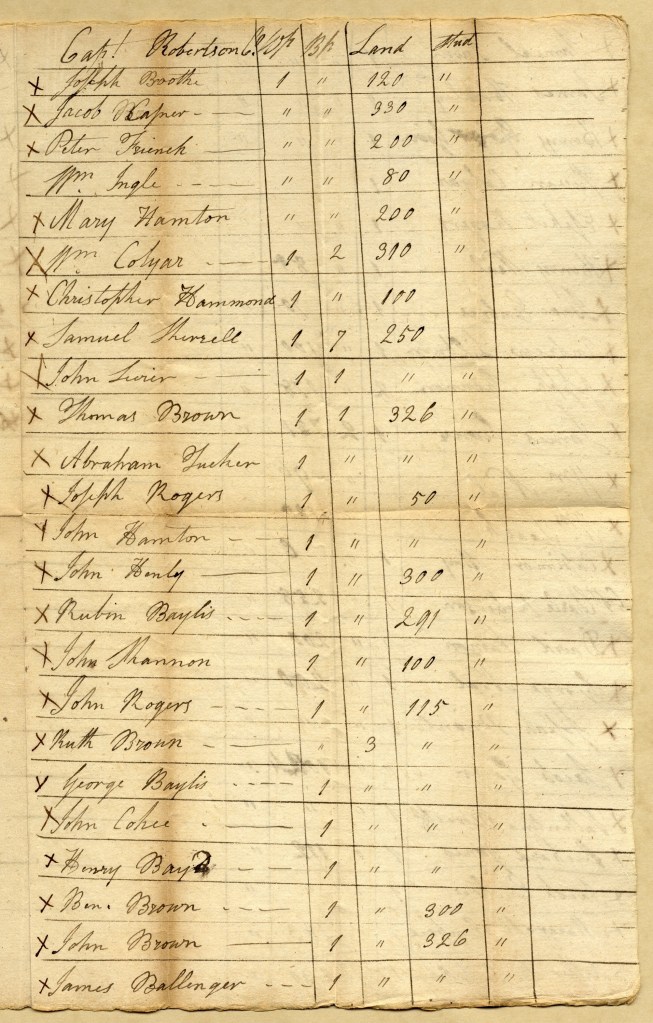 Capt. Robertson Co. Wp Bp Land Stud
x Joseph Boothe 1 " 120 "
x Jacob Hapner - - " " 330 "
x Peter French - " " 200 "
Wm Ingle - - " " 80 "
x Mary Hamton " " 200 "
x Wm Colyar - 1 2 310 "
x Christopher Hammond 1 " 100
x Samuel Sherrell 1 7 250
x John - 1 1 " "
x Thomas Brown 1 1 326 "
x Abraham Tucker 1 " " "
x Joseph Rogers 1 " 50 "
x John Hamton - - 1 " " "
x John Henly - 1 " 300 "
x Rubin Baylis - - - 1 " 291 "
x John Shannon 1 " 100 "
x John Rogers - - - - 1 " 115 "
x Ruth Brown - - " 3 " "
x George Baylis - - - 1 " " "
x John Cohee - 1 " " "
x Henry - - 1 " " "
x Ben. Brown - - - 1 " 300 "
x John Brown - 1 " 326 "
x James Ballenger - - - 1 " " "